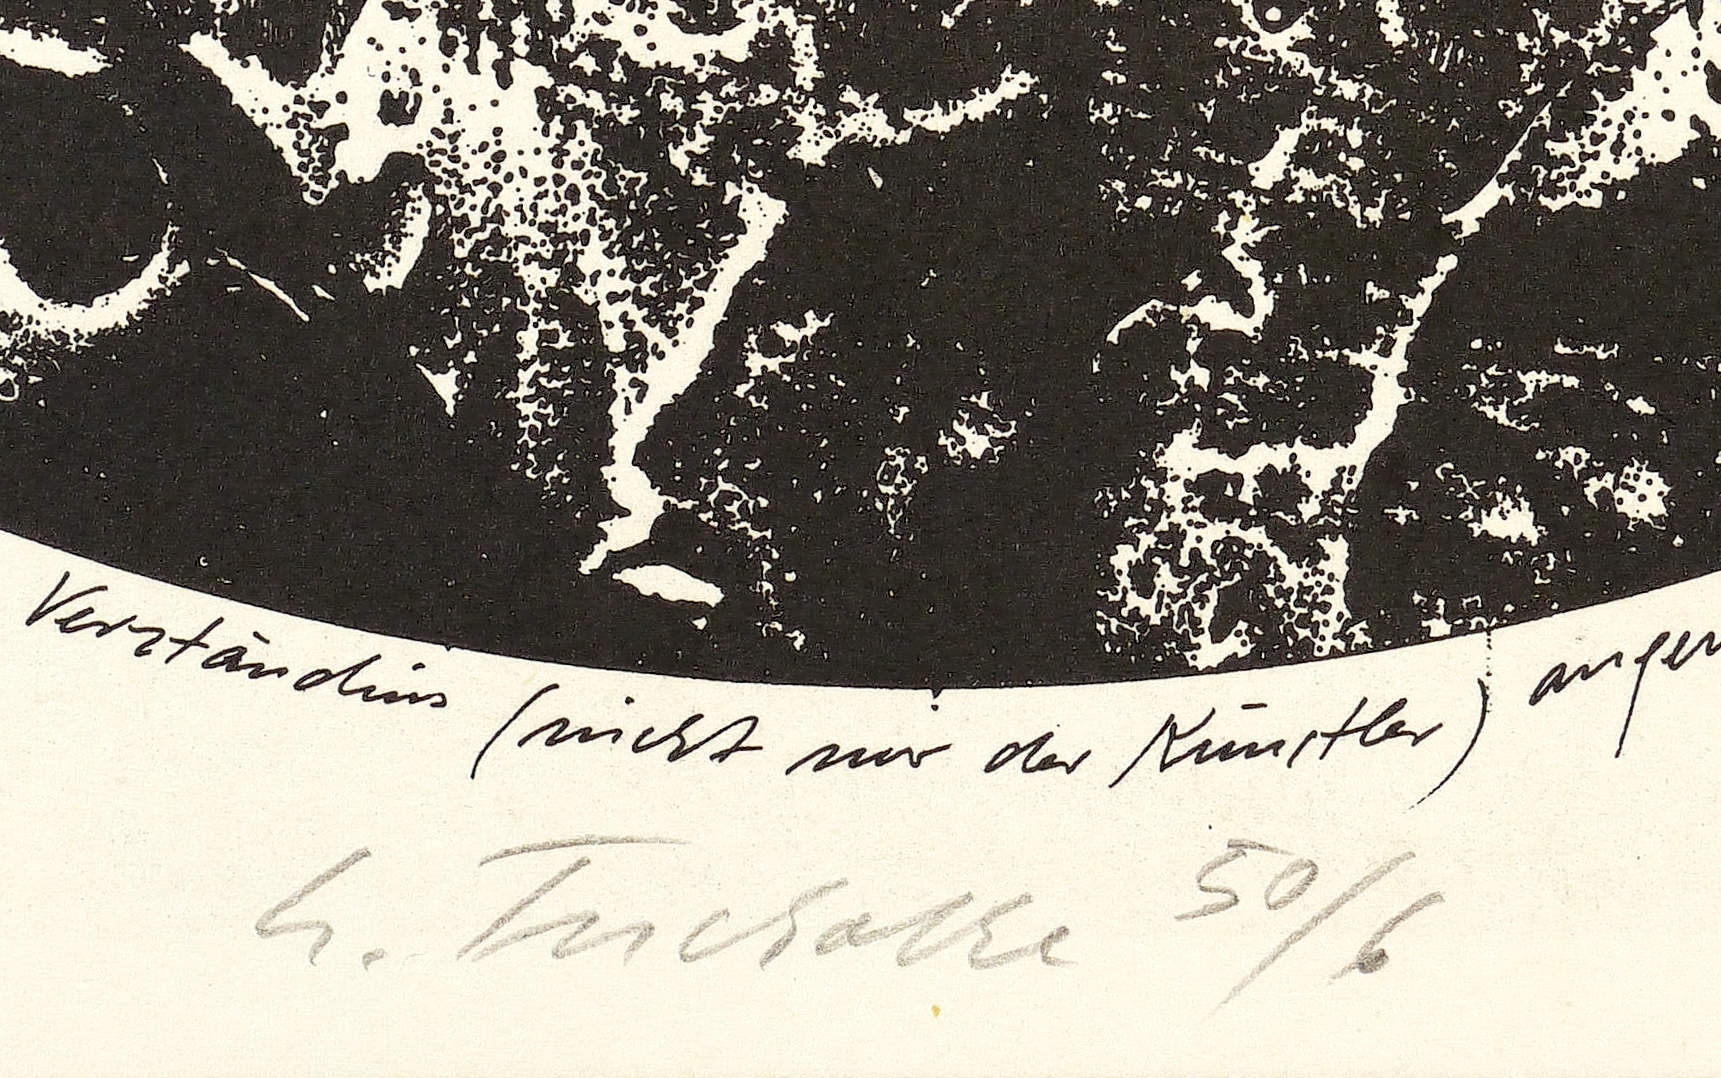 Verständnis (nicht nur der Künstler) angen
h. Tuchalke 50/6